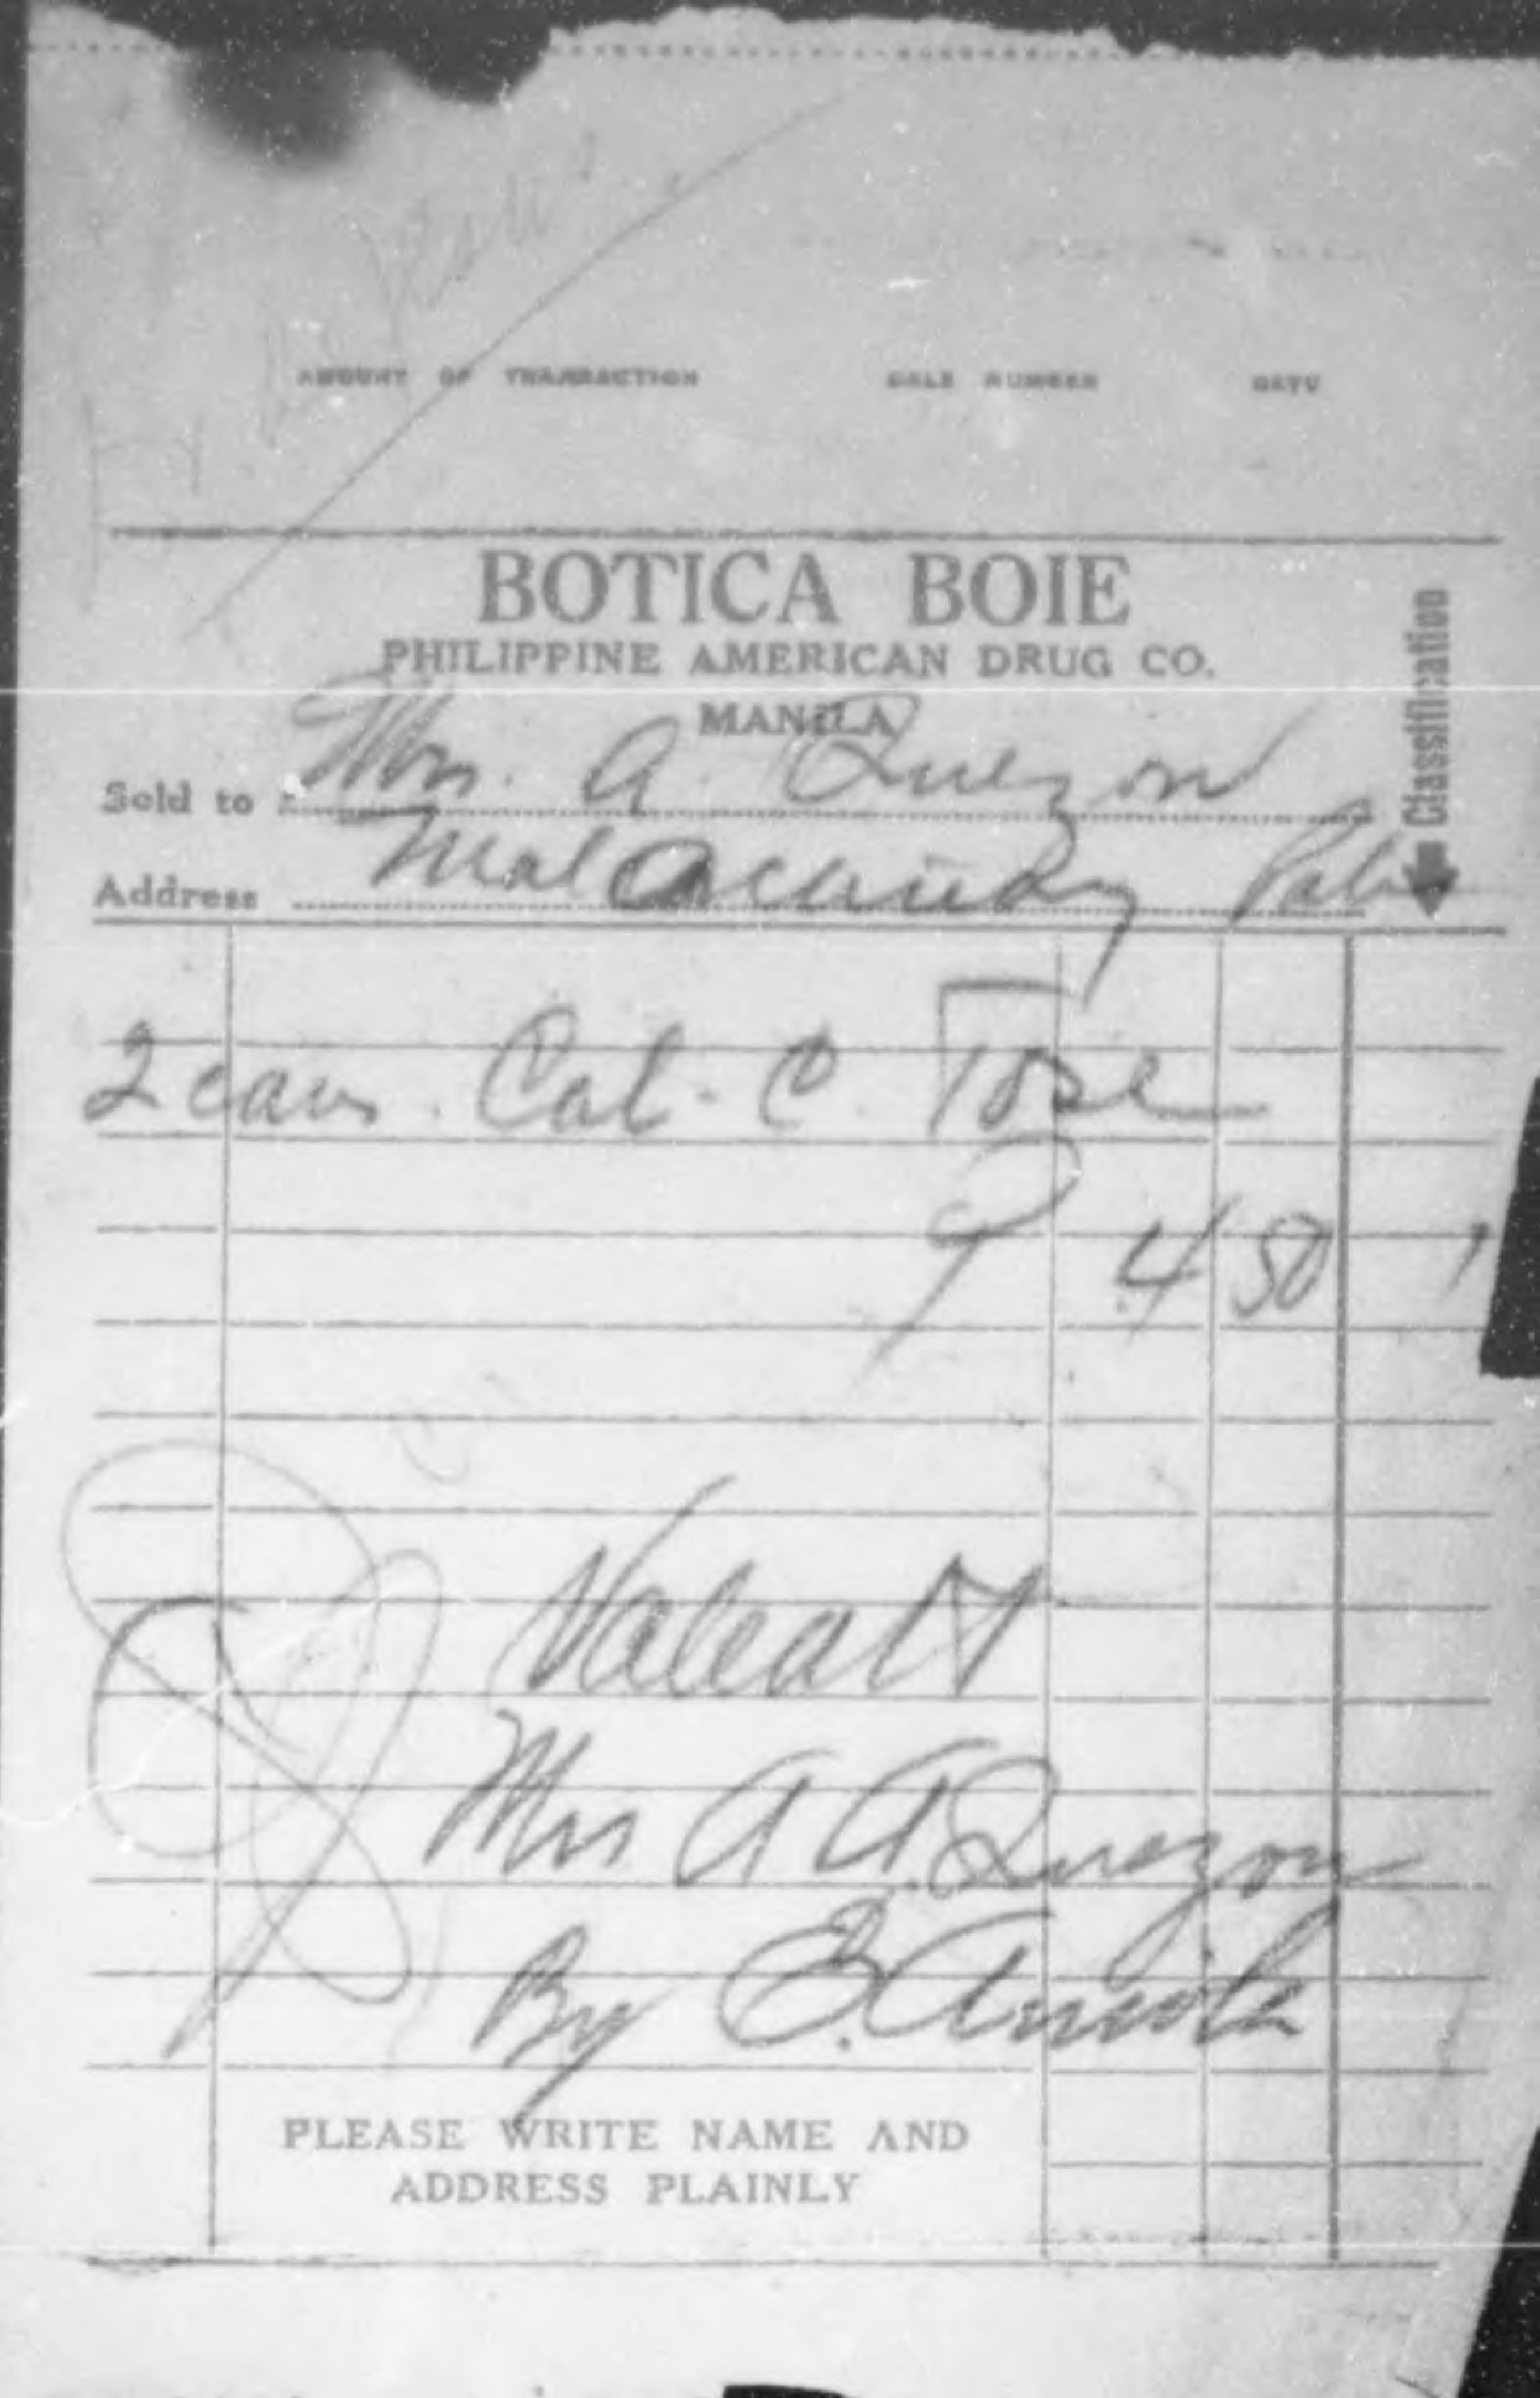 AMOUNT OF TRANSACTION SALE NUMBER DATE
BOTICA BOIE
PHILIPPINE AMERICAN DRUG CO.
MANILA
Classification
Sold to Mrs. A. Quezon
Address
2 cans. Cal. C. Tose
₱ 4 50
Mrs A A. Quezon
By E.
PLEASE WRITE NAME AND
ADDRESS PLAINLY